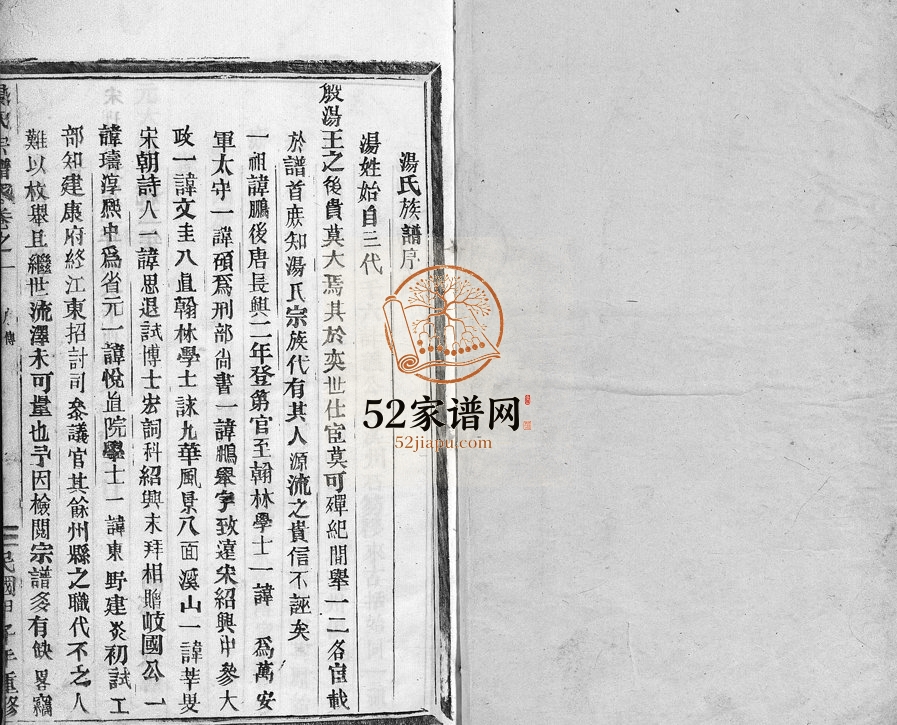 湯氏族譜序
湯姓始自三代
殷湯王之後貴莫大焉其於奕世仕宦莫可殫紀開舉一二各宦載
於譜首庶知湯氏宗族代有其人源流之貴信不誣矣
一祖諱鵬後唐長興二年登第官至翰林學士一諱 為萬安
軍太守一諱碩為刑部尚書一諱鵬舉字致遠宋紹興中參大
政一諱文圭入直翰林學士詠九華風景八面溪山一諱莘叟
宋朝詩人一諱思退試博士宏詞科紹興末拜相贈岐國公一
諱璹淳熙中為省元一諱悅直院學士一諱東野建炎初試工
部知建康府終江東招討司叅議官其餘州縣之職代不乏人
難以枚舉且繼世流澤未可量也予因檢閱宗譜多有缺畧竊
氏宗譜 卷之一 傳 民國 重修
52家谱网
52jiapu.com